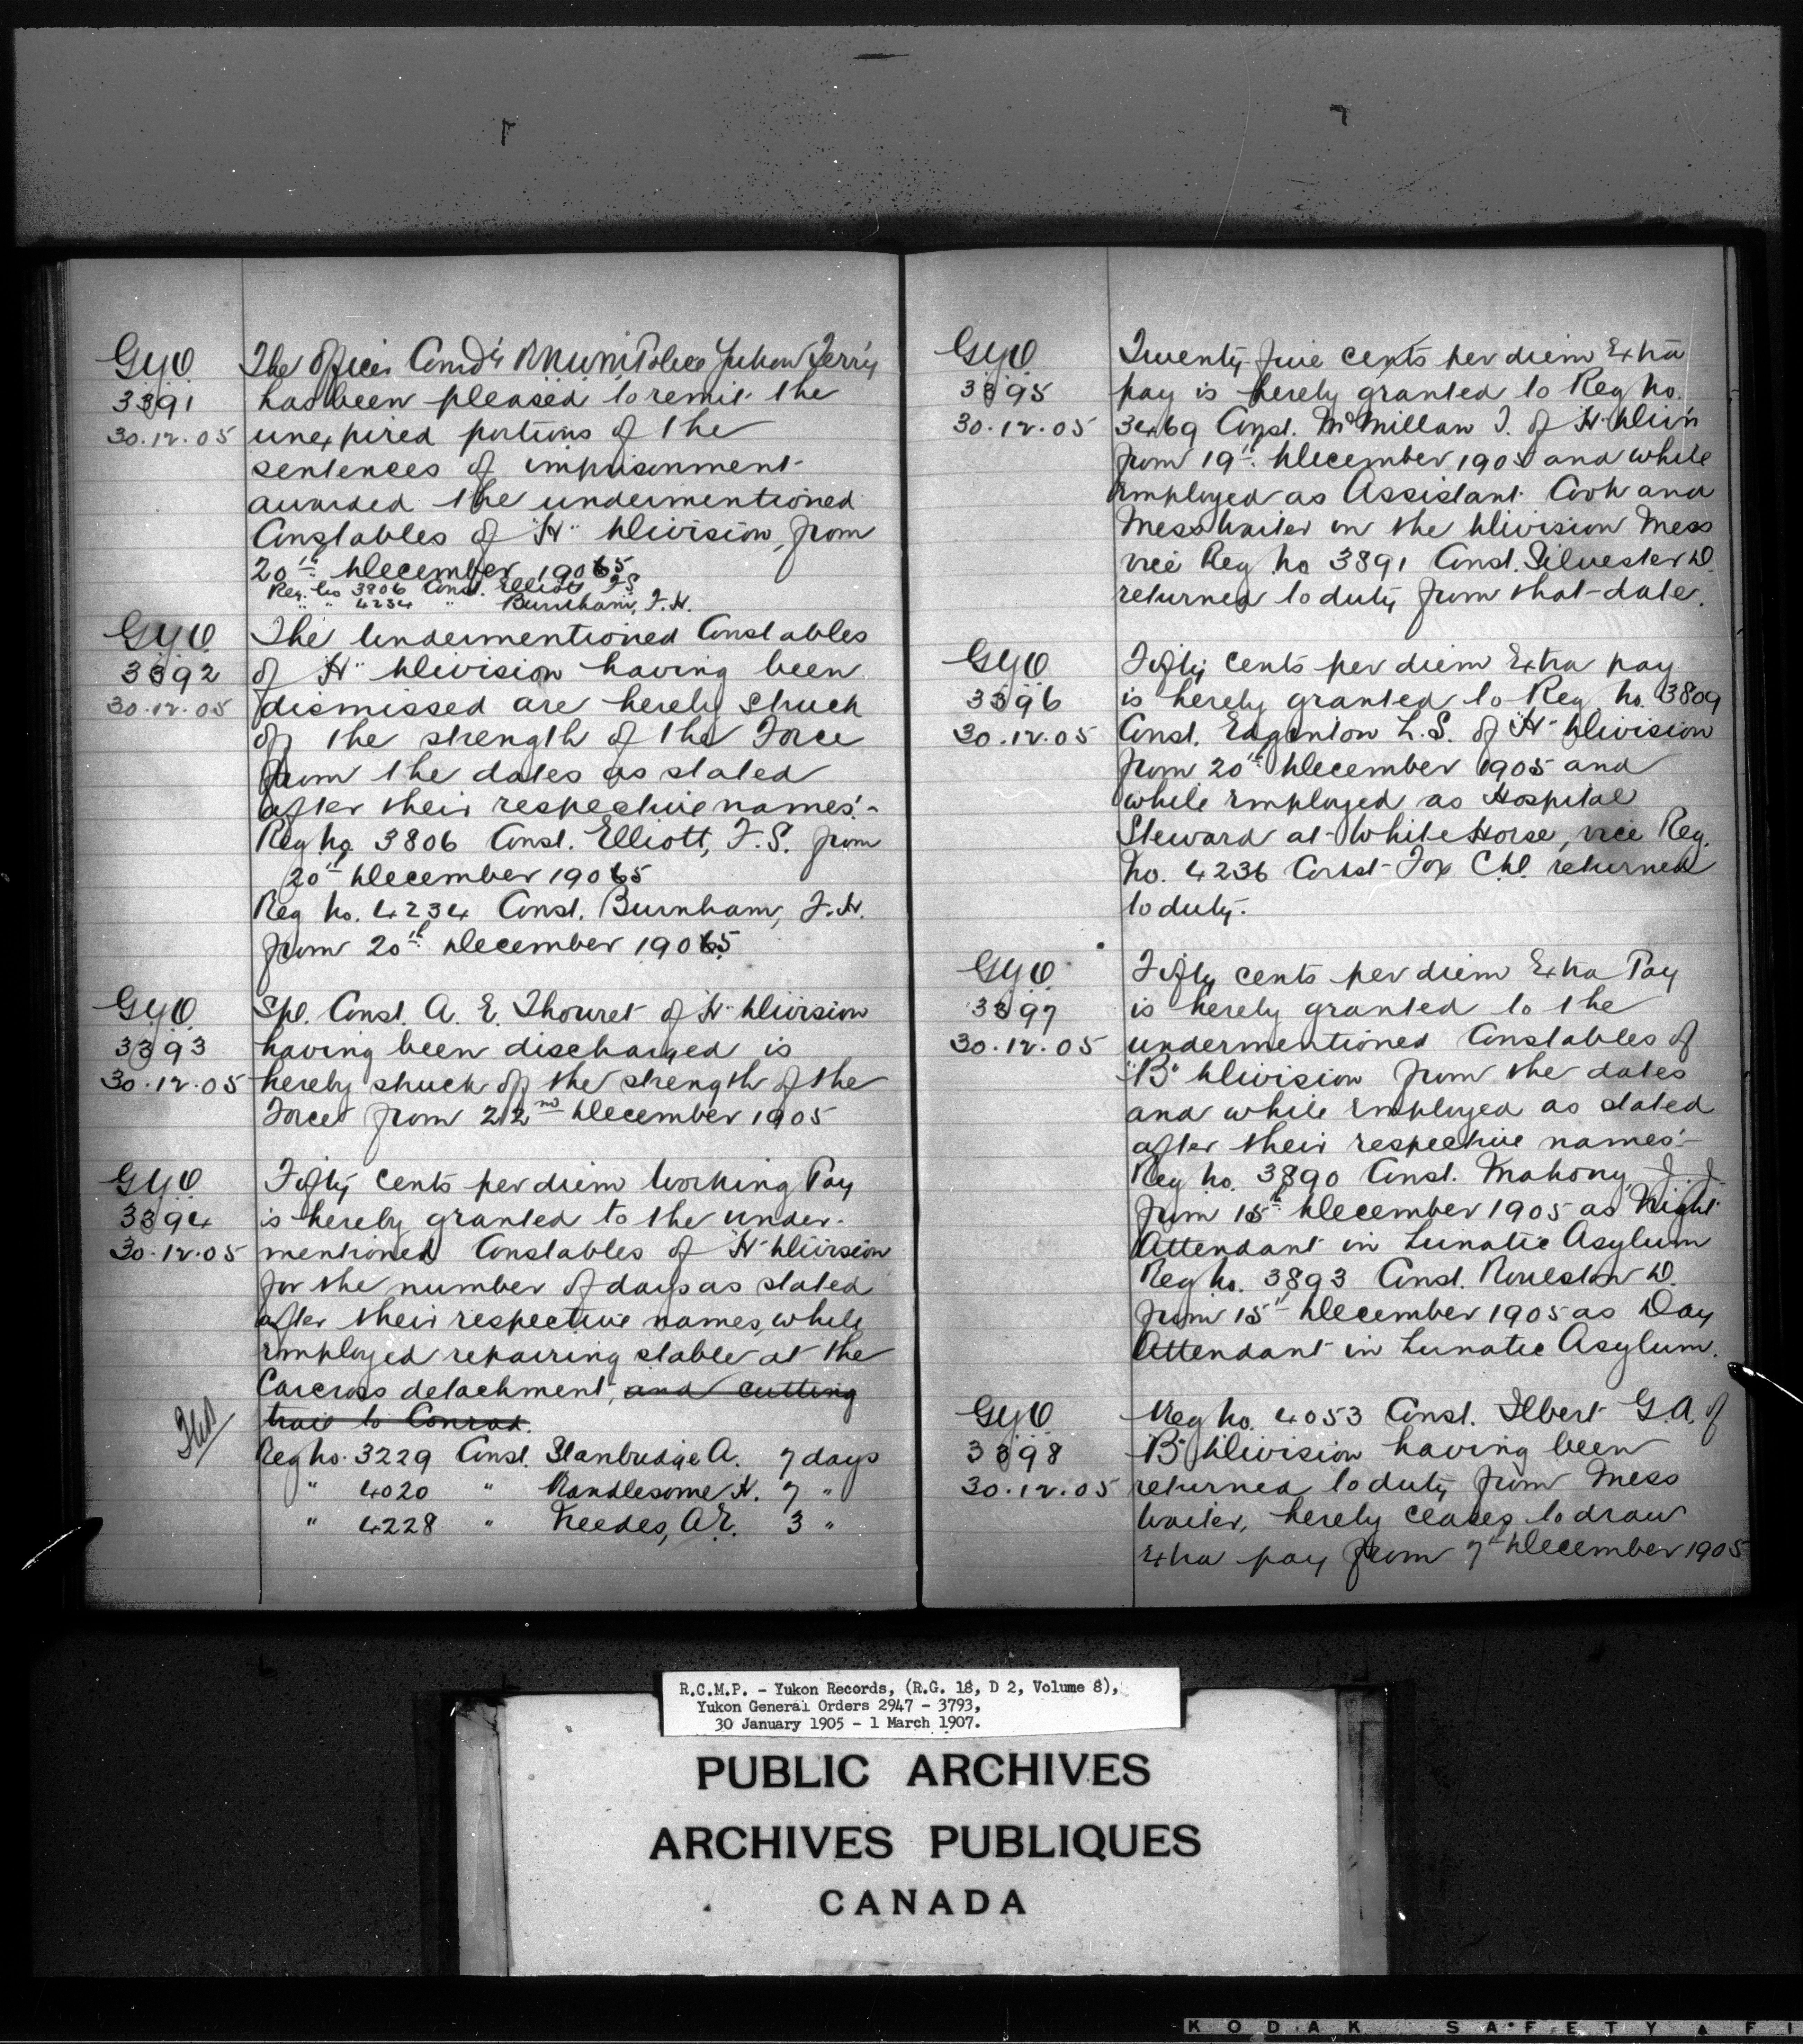 G.Y.O.
3391
30.12.05
The Officer Comd'g R.N.W.M. Police Yukon Terr'y
has been pleased to remit the
unexpired portions of the
sentences of imprisonment
awarded the undermentioned
Constables of "H" Division, from
20th December 1905
Reg. No 3806 Const. Elliott F.S.
" " 4234 " Burnham, F.H.
G.Y.O.
3392
30.12.05
The Undermentioned Constables
of "H" Division having been
dismissed are hereby struck
off the strength of the Force
from the dates as stated
after their respective names:-
Reg No. 3806 Const. Elliott, F.S. from
20th December 1905
Reg No. 4234 Const. Burnham, F.H.
from 20th December 1905
G.Y.O.
3393
30.12.05
Spl. Const. A. E. Thouret of "H" Division
having been discharged is
hereby struck off the strength of the
Force from 22nd December 1905
G.Y.O.
3394
30.12.05
Fifty cents per diem Working Pay
is hereby granted to the under-
mentioned Constables of "H" Division
for the number of days as stated
after their respective names, while
employed repairing stable at the
Carcross detachment, and cutting
trail to Conrad.
Reg No. 3229 Const. Stanbridge A. 7 days
" 4020 " Handlesome H. 7 "
" 4228 " Needes, A.E. 3 "
G.Y.O.
3395
30.12.05
Twenty five cents per diem Extra
pay is hereby granted to Reg No.
3469 Const. McMillan J. of "H" Div'n
from 19th December 1905 and while
employed as Assistant Cook and
Mess Waiter in the Division Mess
vice Reg No 3891 Const. Silvester D.
returned to duty from that date.
G.Y.O.
3396
30.12.05
Fifty cents per diem Extra pay
is hereby granted to Reg No. 3809
Const. Edginton L.S. of "H" Division
from 20th December 1905 and
while employed as Hospital
Steward at White Horse, vice Reg.
No. 4236 Const Fox returned
to duty.
G.Y.O.
3397
30.12.05
Fifty cents per diem Extra Pay
is hereby granted to the
undermentioned Constables of
"B" Division from the dates
and while employed as stated
after their respective names:-
Reg No. 3890 Const. Mahony, J.J.
from 15th December 1905 as Night
Attendant in Lunatic Asylum
Reg No. 3893 Const. Roulston D.
from 15th December 1905 as Day
Attendant in Lunatic Asylum.
G.Y.O.
3398
30.12.05
Reg No. 4053 Const. Ilbert G.A. of
"B" Division having been
returned to duty from Mess
Waiter, hereby ceases to draw
Extra pay from 7th December 1905
R.C.M.P. - Yukon Records, (R.G. 18, D 2, Volume 8),
Yukon General Orders 2947 - 3793,
30 January 1905 - 1 March 1907.
PUBLIC ARCHIVES
ARCHIVES PUBLIQUES
CANADA
KODAK SAFETY FI